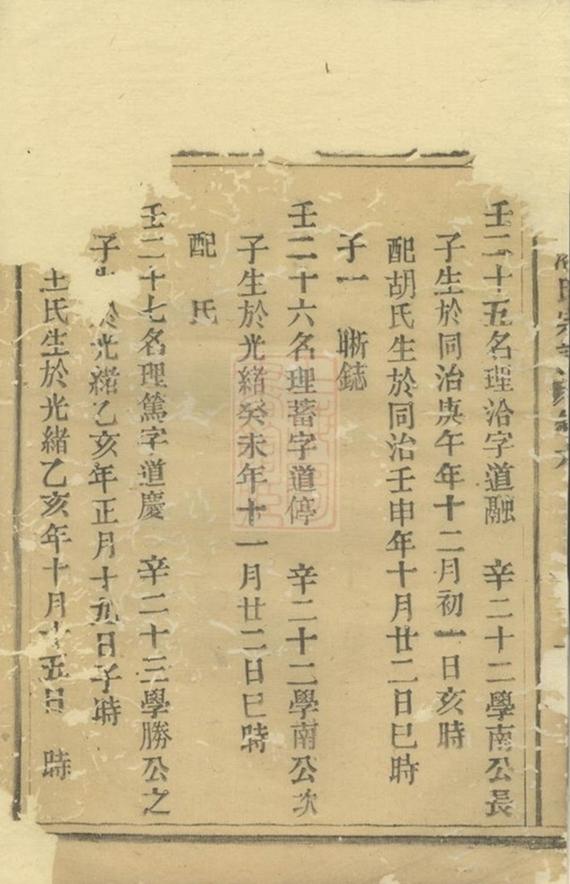 壬二十五名理洽字道融　辛二十二學南公長
子生於同治庚午年十二月初一日亥時
配胡氏生於同治壬申年十月廿二日巳時
子一　晰鋕
壬二十六名理蓄字道停　辛二十二學南公次
子生於光緒癸未年十一月廿二日巳時
配　氏
壬二十七名理篤字道慶　辛二十三學勝公之
子生於光緒乙亥年正月十九日子時
氏生於光緒乙亥年十月十五日　時